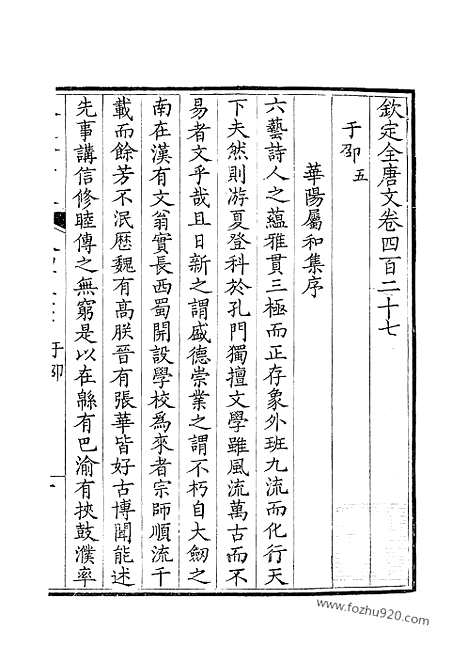 欽定全唐文卷四百二十七
于邵五
華陽屬和集序
六藝詩人之蘊雅貫三極而正存象外班九流而化行天
下夫然則游夏登科於孔門獨擅文學雖風流萬古而不
易者文乎哉且日新之謂盛德崇業之謂不朽自大劒之
南在漢有文翁實長西蜀開設學校為來者宗師順流千
載而餘芳不泯歷魏有高朕晉有張華皆好古博聞能述
先事講信修睦傳之無窮是以在緜有巴渝有挾鼓濮率
于邵
一
www.fozhu920.com